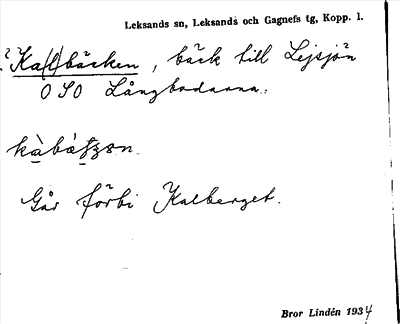 Leksands sn, Leksands och Gagnefs tg, Kopp. l.
? Ka(l)bäcken, bäck till Lejsjön
O SO Långbodarna.
Går förbi Kalberget.
Bror Lindén 1934